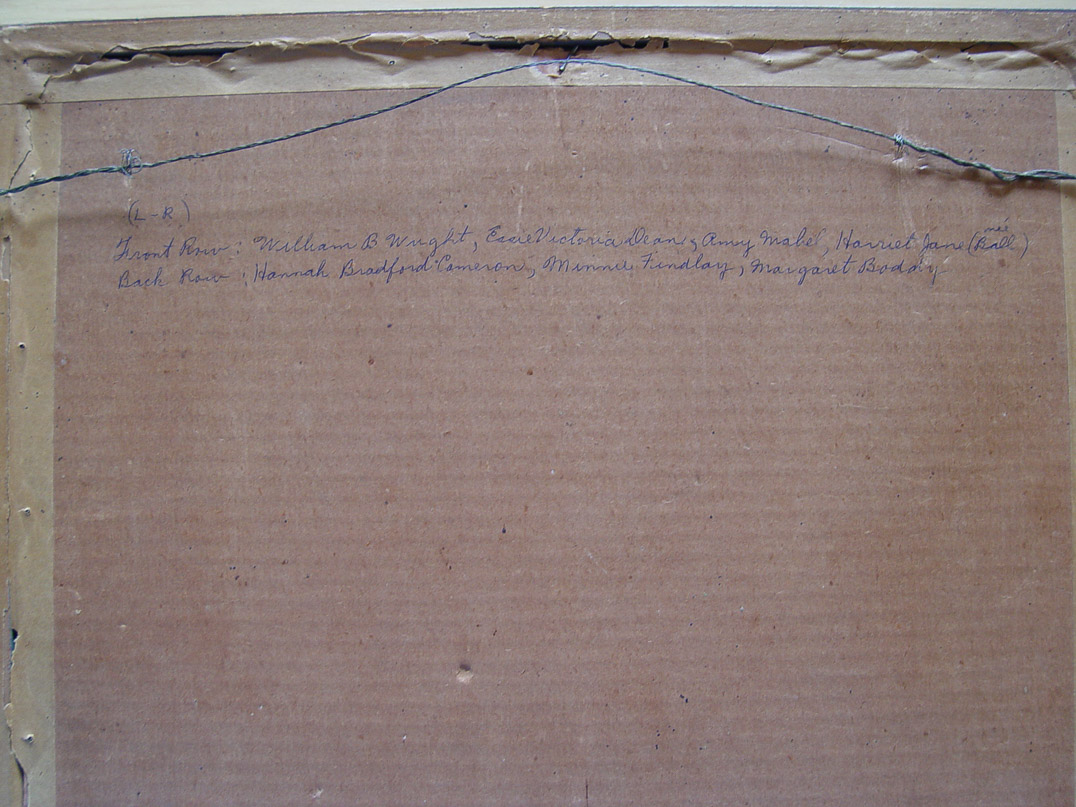 (L-R)
née
Front Row: William B Wright, Essie Victoria Dean, Amy Mabel, Harriet Jane (Ball)
Back Row: Hannah Bradford Cameron, Minnie Findlay, Margaret Boddy